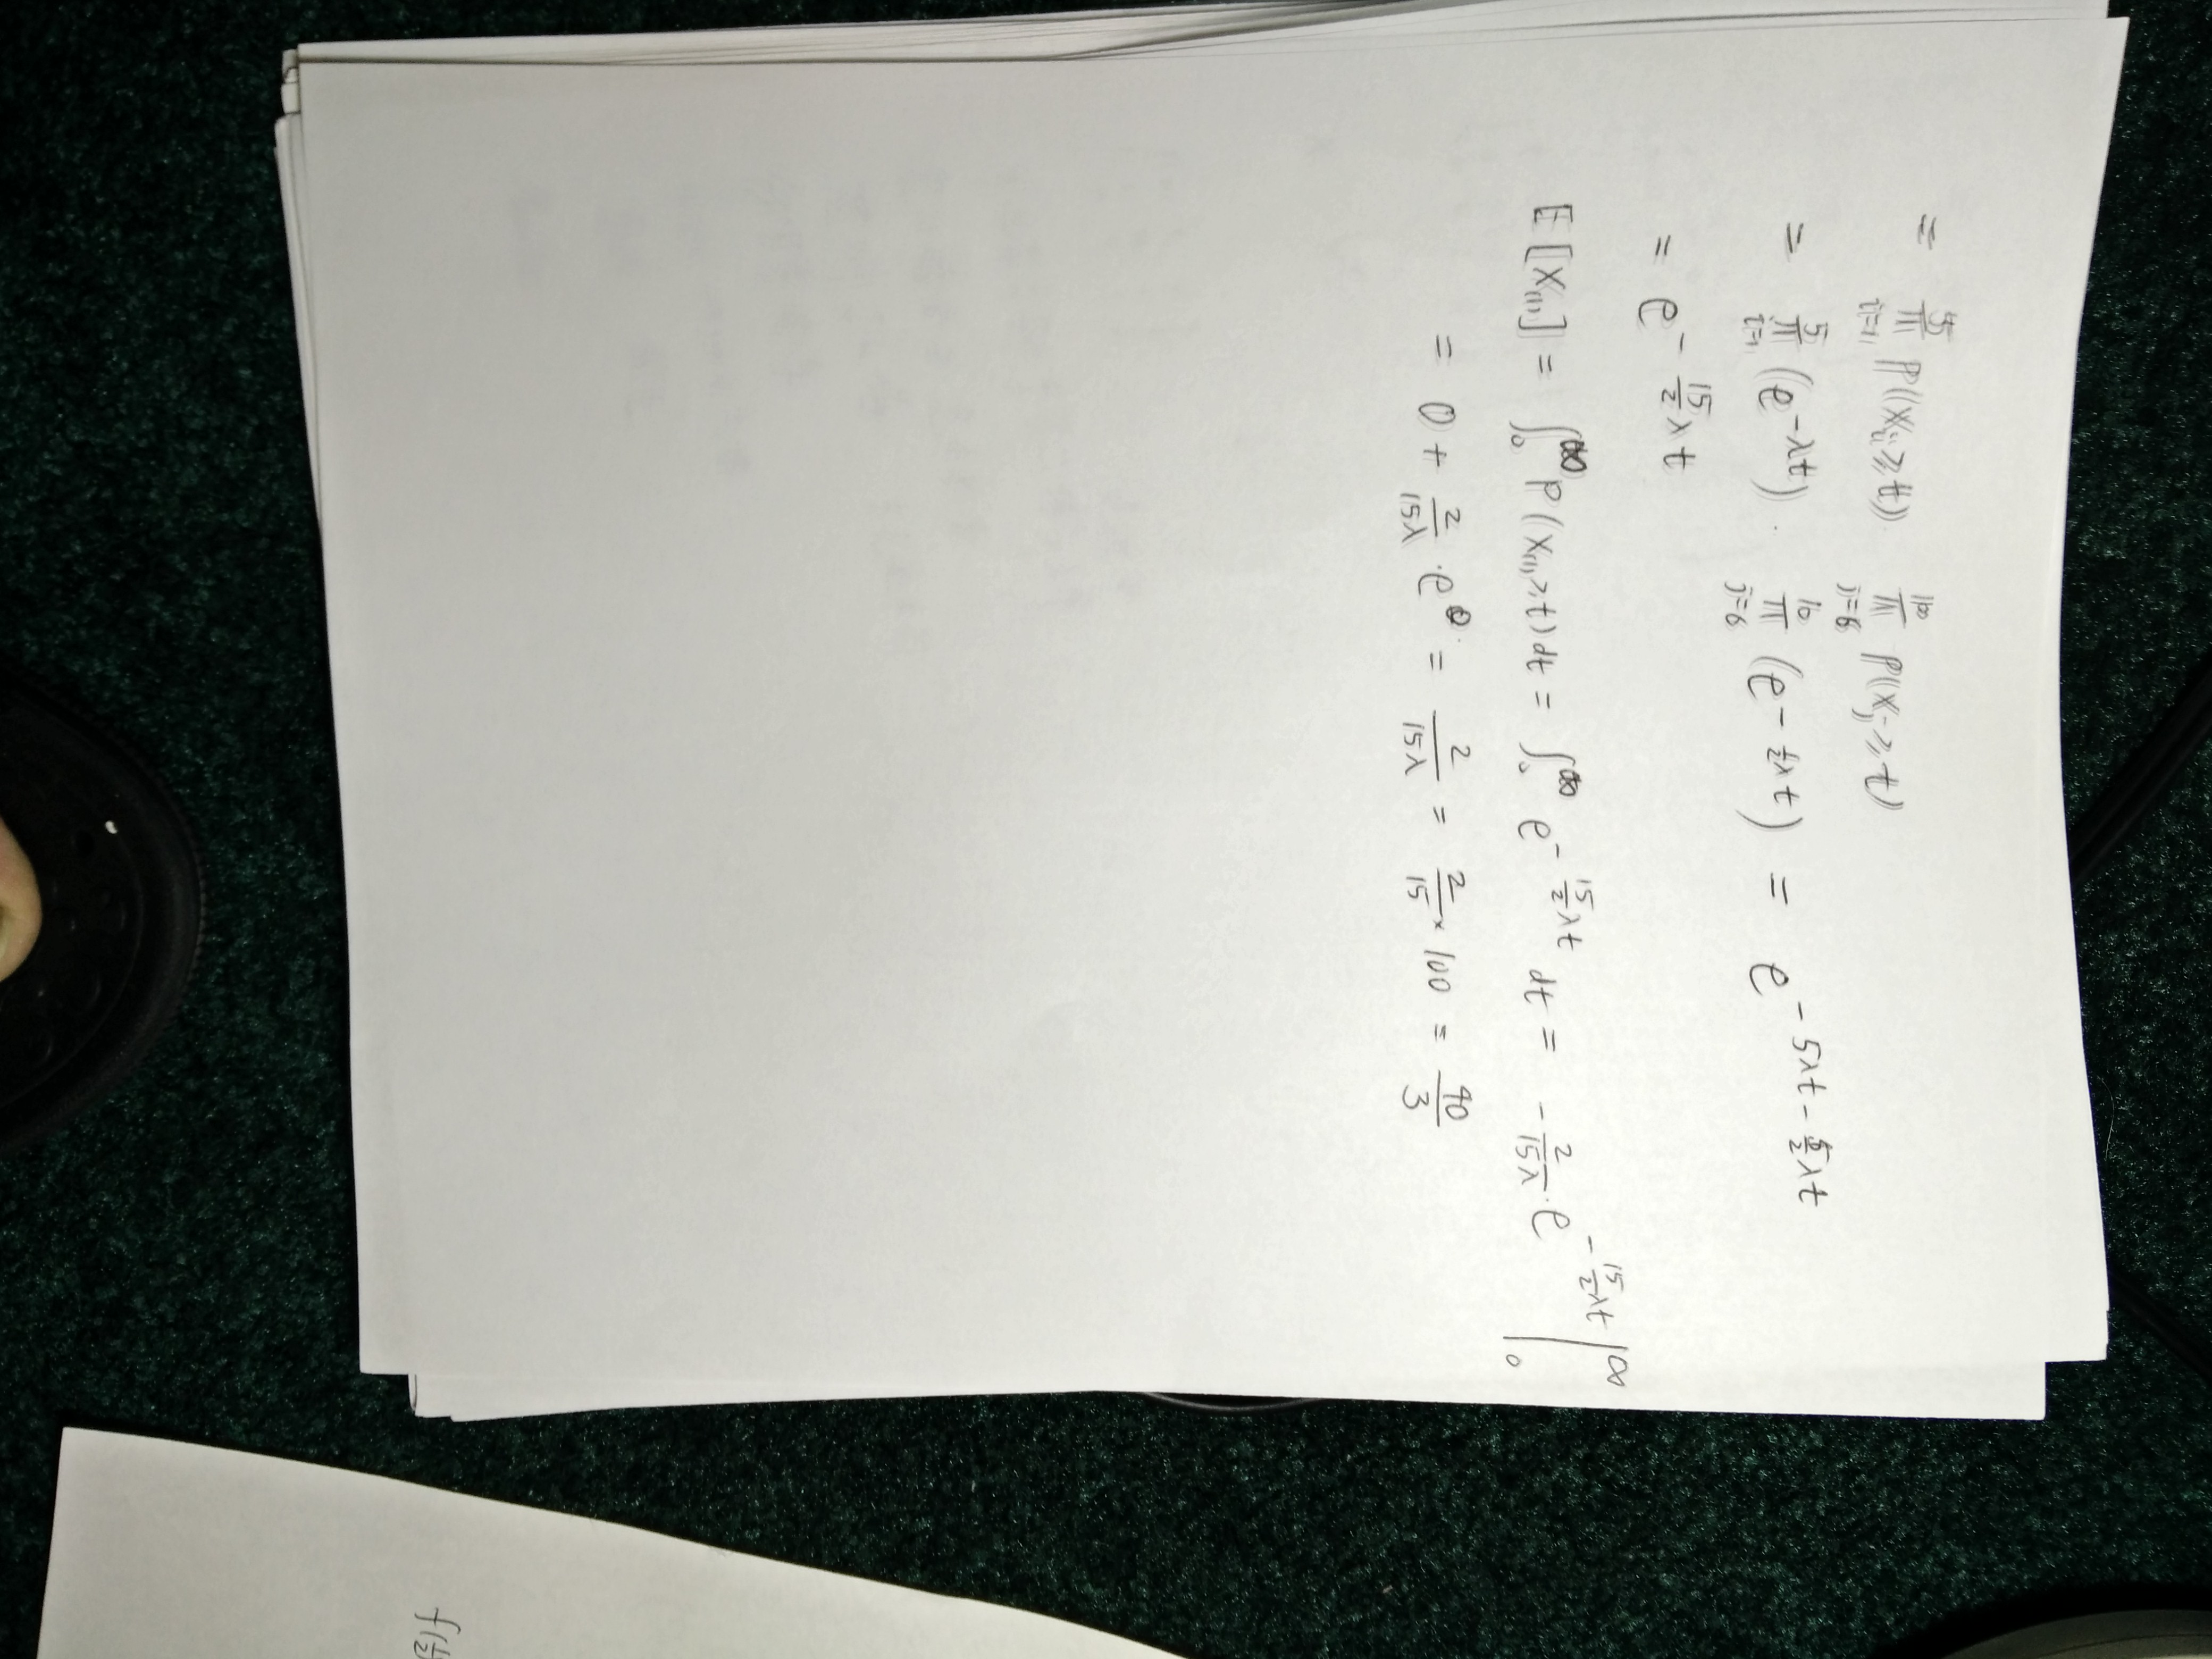 = ∏_{i=1}^{5} P(X_i ≥ t) · ∏_{j=6}^{10} P(X_j ≥ t)
= ∏_{i=1}^{5} (e^{-λt}) · ∏_{j=6}^{10} (e^{-\frac{1}{2}λt}) = e^{-5λt - \frac{5}{2}λt}
= e^{-\frac{15}{2}λt}
E[X_{(1)}] = ∫_0^∞ P(X_{(1)} ≥ t) dt = ∫_0^∞ e^{-\frac{15}{2}λt} dt = -\frac{2}{15λ} · e^{-\frac{15}{2}λt} |_0^∞
= 0 + \frac{2}{15λ} · e^0 = \frac{2}{15λ} = \frac{2}{15} × 100 = \frac{40}{3}
f(\frac{1}{2}